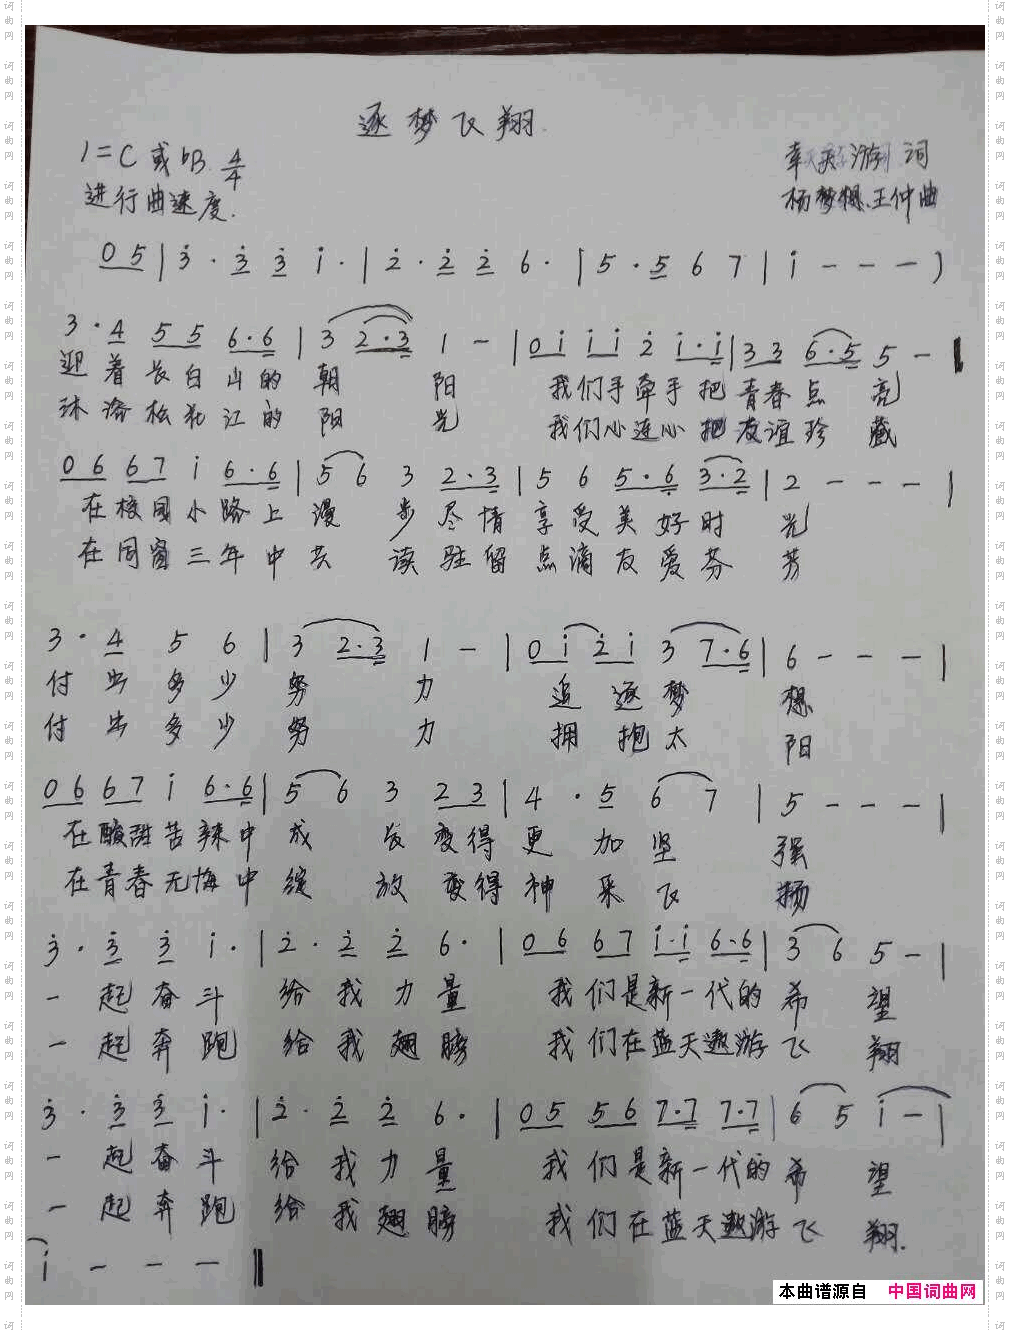 逐梦飞翔
1=C 或 bB 4/4
进行曲速度.
辛天游 词
杨梦想、王仲曲
0 5 | 3 · 3 3 i · | 2 · 2 2 6 · | 5 · 5 6 7 | i - - - )
3 · 4 5 5 6·6 | 3 2·3 1 - | 0 i i i 2 i·i | 3 3 6·5 5 -
迎着长白山的朝阳 我们手牵手把青春点亮
沐浴松花江的阳光 我们心连心把友谊珍藏
0 6 6 7 i 6·6 | 5 6 3 2·3 | 5 6 5·6 3·2 | 2 - - - |
在校园小路上漫步尽情享受美好时光
在同窗三年中共读驻留点滴友爱芬芳
3 · 4 5 6 | 3 2·3 1 - | 0 i 2 i 3 7·6 | 6 - - - |
付出多少努力 追逐梦想
付出多少努力 拥抱太阳
0 6 6 7 i 6·6 | 5 6 3 2 3 | 4 · 5 6 7 | 5 - - - |
在酸甜苦辣中成长变得更加坚强
在青春无悔中绽放变得神采飞扬
3 · 3 3 i · | 2 · 2 2 6 · | 0 6 6 7 i·i 6·6 | 3 6 5 - |
一起奋斗 给我力量 我们是新一代的希望
一起奔跑 给我翅膀 我们在蓝天遨游飞翔
3 · 3 3 i · | 2 · 2 2 6 · | 0 5 5 6 7·7 7·7 | 6 5 i - |
一起奋斗 给我力量 我们是新一代的希望
一起奔跑 给我翅膀 我们在蓝天遨游飞翔.
i - - - ‖
本曲谱源自 中国词曲网